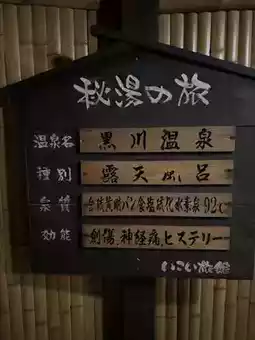 秘湯の旅
温泉名 黒川温泉
種別 露天風呂
泉質 含硫黄酸パン食塩硫化水素泉92℃
効能 創傷、神経痛、ヒステリー
いこい旅館